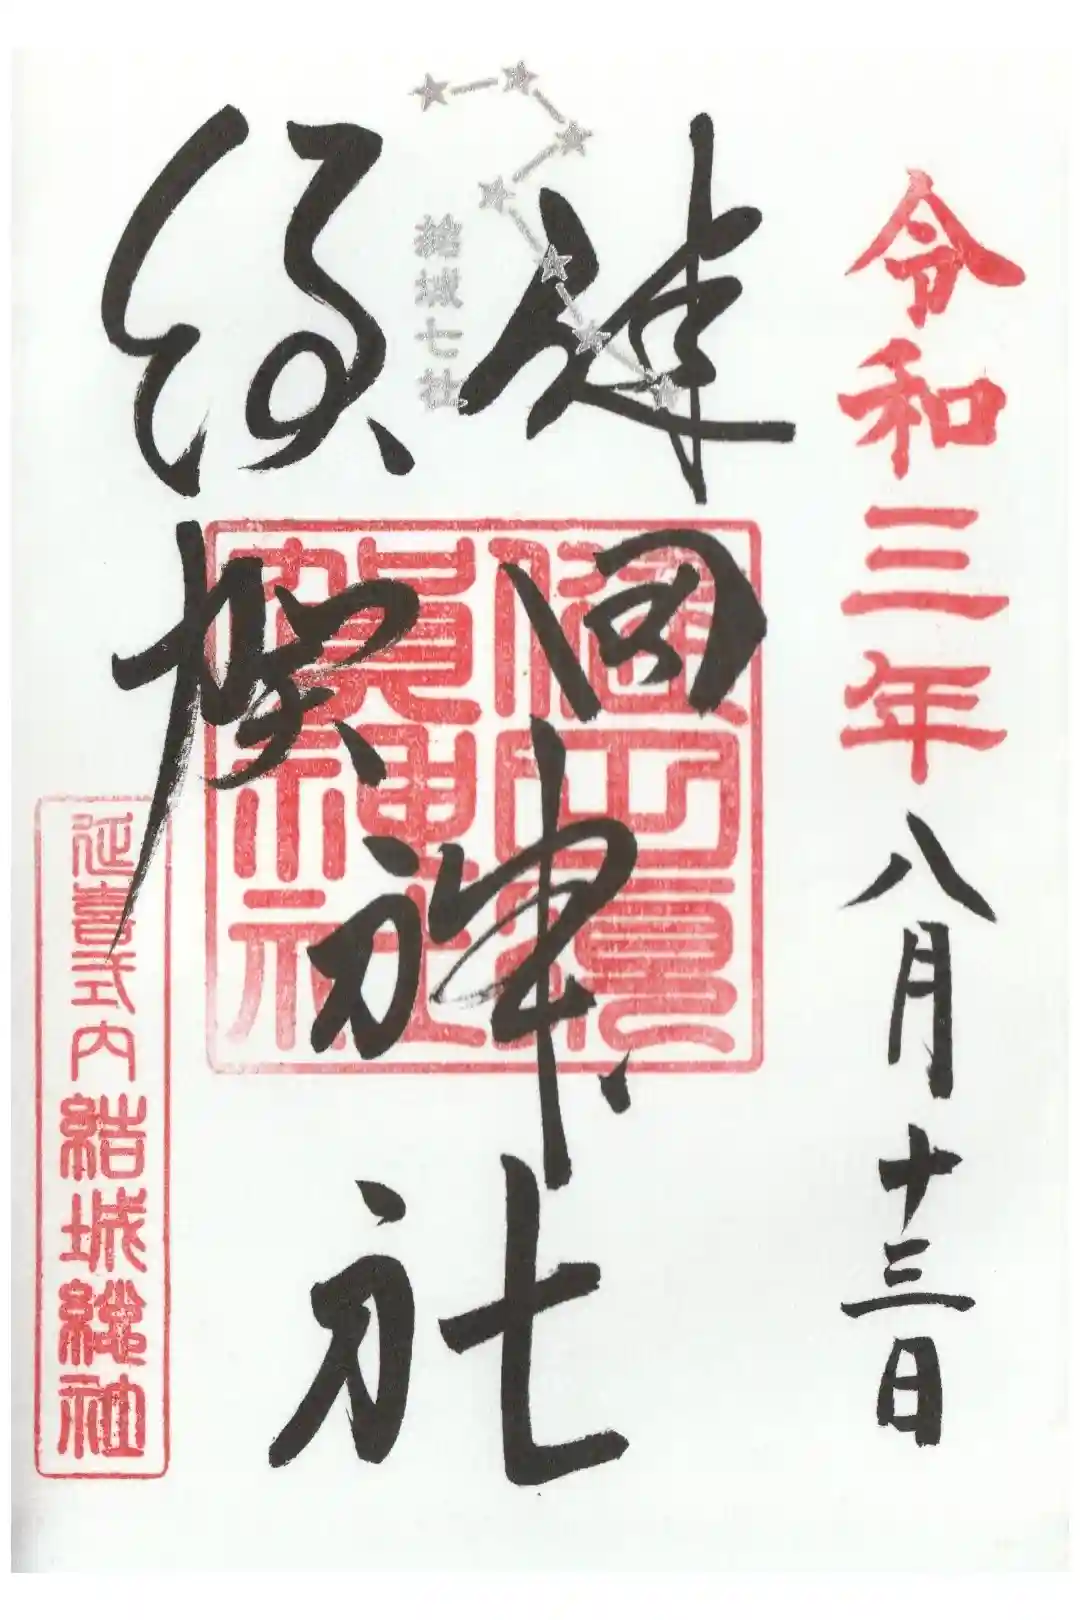 令和三年八月十三日
健田
須賀
神社
結城七社
健田須
賀神社
延喜式内 結城総社